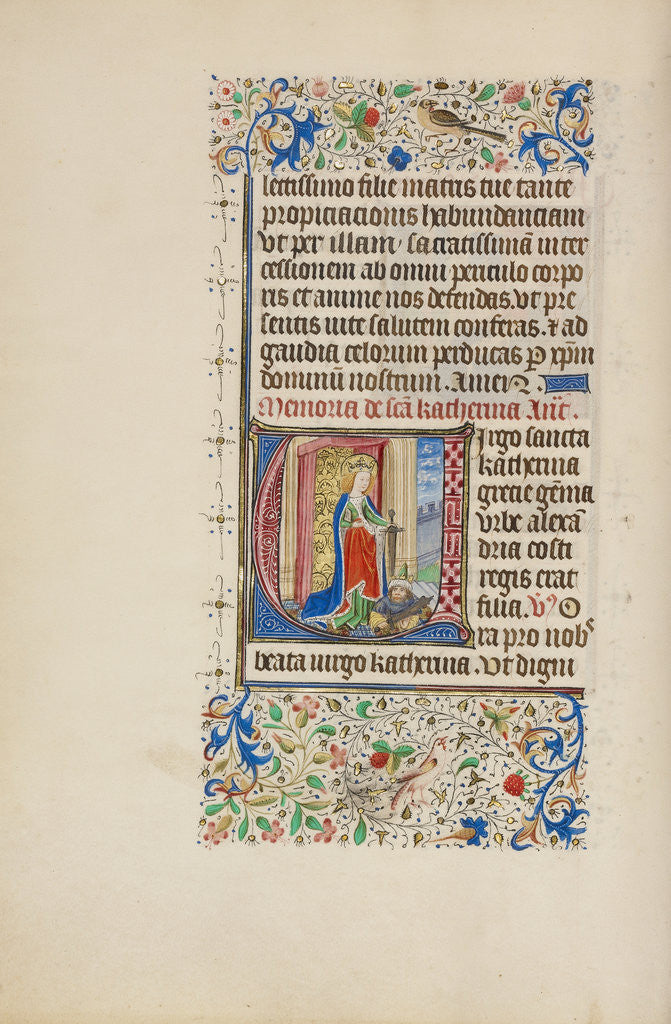 lectissimo filie matris tue tante
propiciacionis habundanciam
vt per illam sacratissimā inter
cessionem ab omni periculo corpo
ris et anime nos defendas. vt pre
sentis uite salutem conferas. ⁊ ad
gaudia celorum perducas ꝑ xp̄m
dominū nostrum. Amen.
Memoria de sc̄a katherina An̄t.
Virgo sancta
katherina
grecie gēma
vrbe alexā
dria costi
regis erat
filia. V̓s O
ra pro nobꝰ
beata uirgo katherina. Vt digni